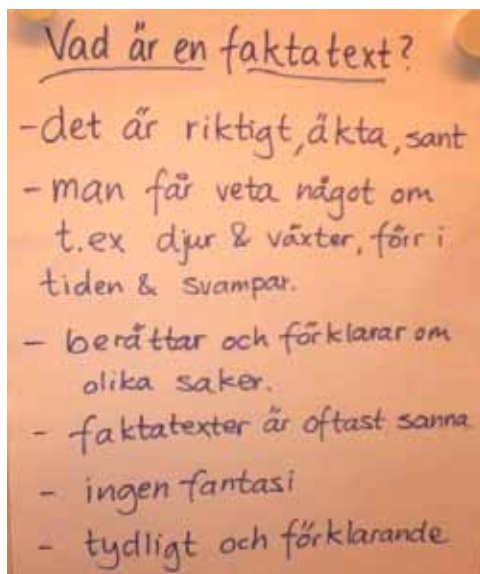 Vad är en faktatext?
-det är riktigt, äkta, sant
- man får veta något om
t.ex djur & växter, förr i
tiden & svampar.
- berättar och förklarar om
olika saker.
- faktatexter är oftast sanna
- ingen fantasi
- tydligt och förklarande